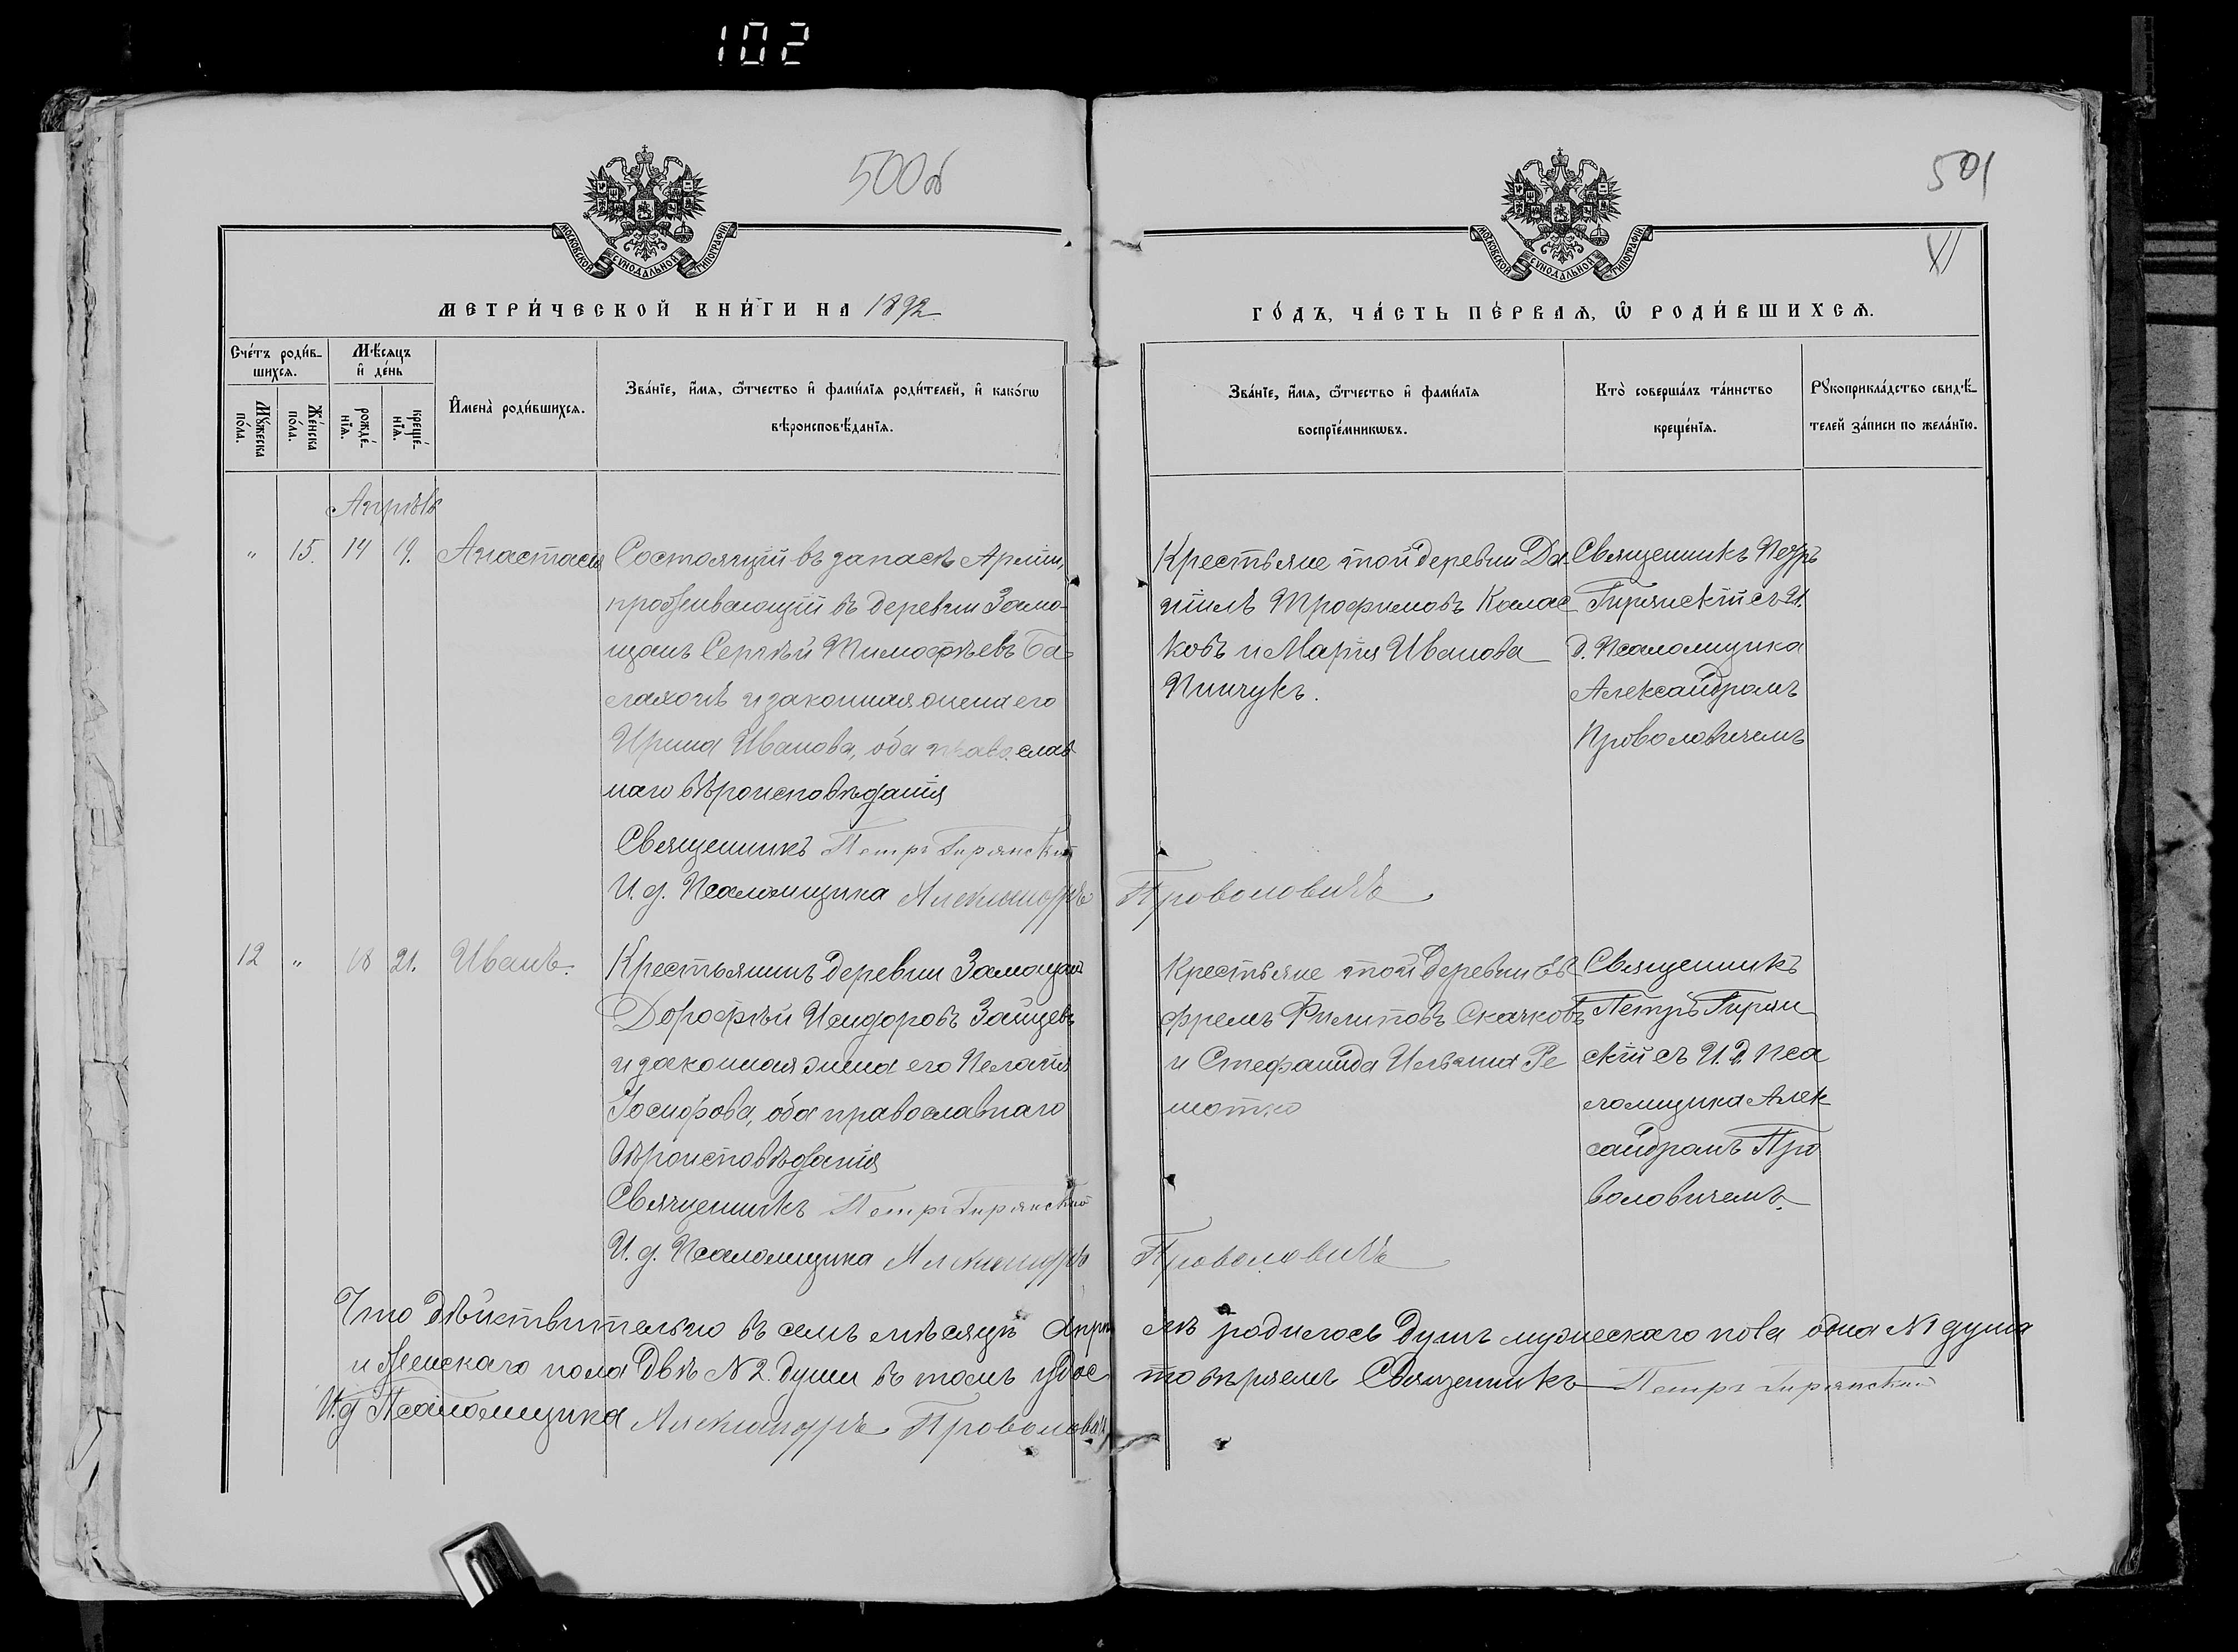 102
500об
501
VI
МОСКОВСКОЙ СѴНОДАЛЬНОЙ ТИПОГРАФІИ
МОСКОВСКОЙ СѴНОДАЛЬНОЙ ТИПОГРАФІИ
МЕТРИ́ЧЕСКОЙ КНИ́ГИ НА 1892
ГО́ДЪ, ЧА́СТЬ ПЕ́РВАѦ, Ѡ҆ РОДИ́ВШИХСѦ.
Сче́тъ роди́в-
шихсѧ.
Мѣ́сяцъ
и҆ де́нь
Мꙋ́жеска
по́ла.
Же́нска
по́ла.
рожде́-
нїѧ.
креще́-
нїѧ.
И҆мена̀ роди́вшихсѧ.
Зва́нїе, и҆́мѧ, ѻ҆́тчество и҆ фами́лїѧ роди́телей, и҆ како́гѡ
вѣроисповѣ́данїѧ.
Зва́нїе, и҆́мѧ, ѻ҆́тчество и҆ фами́лїѧ
воспрїе́мникѡвъ.
Кто̀ соверша́лъ та́инство
креще́нїѧ.
Рꙋкоприкла́дство свидѣ́-
телей за́писи по жела́нїю.
Апрѣль
" 15. 14 19. Анастасія
Состоящій въ запасѣ Арміи,
проживающій въ деревни Замо-
щанъ Сергѣй Тимофѣевъ Ба-
лахонъ и законная жена его
Ирина Иванова, оба православ
наго вѣроисповѣданія
Священникъ Петръ Гирянскій
И. д. Псаломщика Александръ Проволовичъ
Крестьяне той деревни Да-
ніилъ Трофимовъ Колас
ковъ и Марія Иванова
Пинчукъ.
Священникъ Петръ
Гирянскій съ И.
д. Псаломщика
Александромъ
Проволовичемъ
12 " 18 21. Иванъ.
Крестьянинъ деревни Замощанъ
Дорофѣй Исидоровъ Зайцевъ
и законная жена его Пелагія
Іосифова, оба православнаго
вѣроисповѣданія
Священникъ Петръ Гирянскій
И. д. Псаломщика Александръ Проволовичъ
Крестьяне той деревни Еѳ
фремъ Филиповъ Скачковъ
и Стефанида Ильина Ре
мотко
Священникъ
Петръ Гирян
скій съ И. д. Пса
ломщика Алек-
сандромъ Про
воловичемъ.
Что дѣйствительно въ семъ мѣсяцѣ Апрѣ лѣ родилось душъ мужескаго пола одна №1 душа
и женскаго пола двѣ №2. души въ томъ удос товѣряемъ Священникъ Петръ Гирянскій
И.д Псаломщика Александръ Проволовичъ